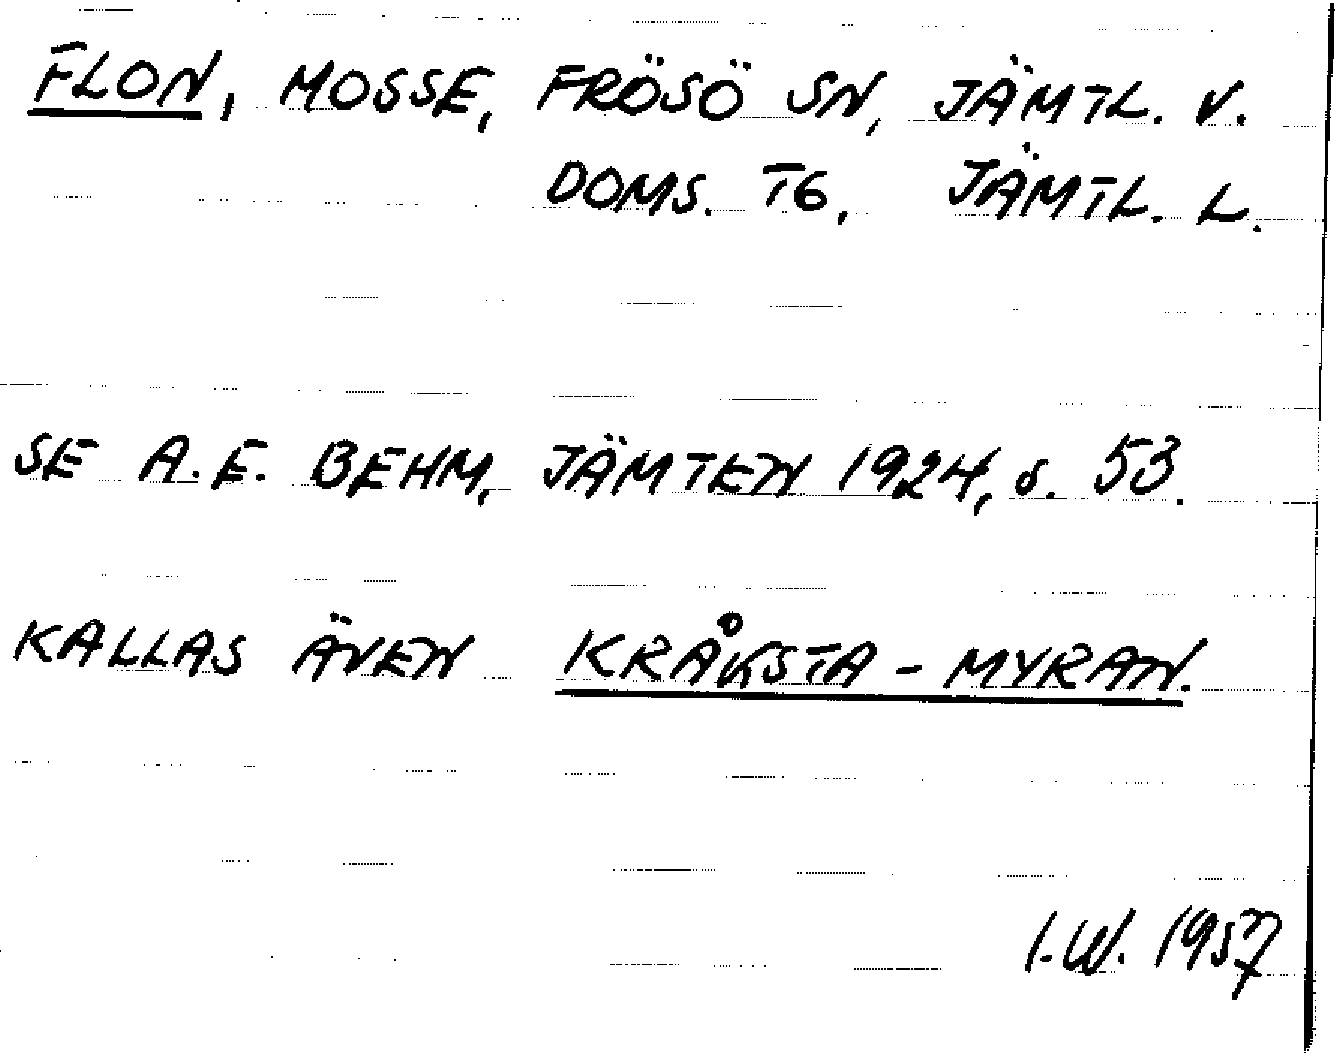 FLON, MOSSE, FRÖSÖ SN, JÄMTL. V.
DOMS. TG, JÄMTL. L.
SE A.E. BEHM, JÄMTEN 1924, s. 53.
KALLAS ÄVEN KRÅKSTA-MYRAN.
I.W. 1957